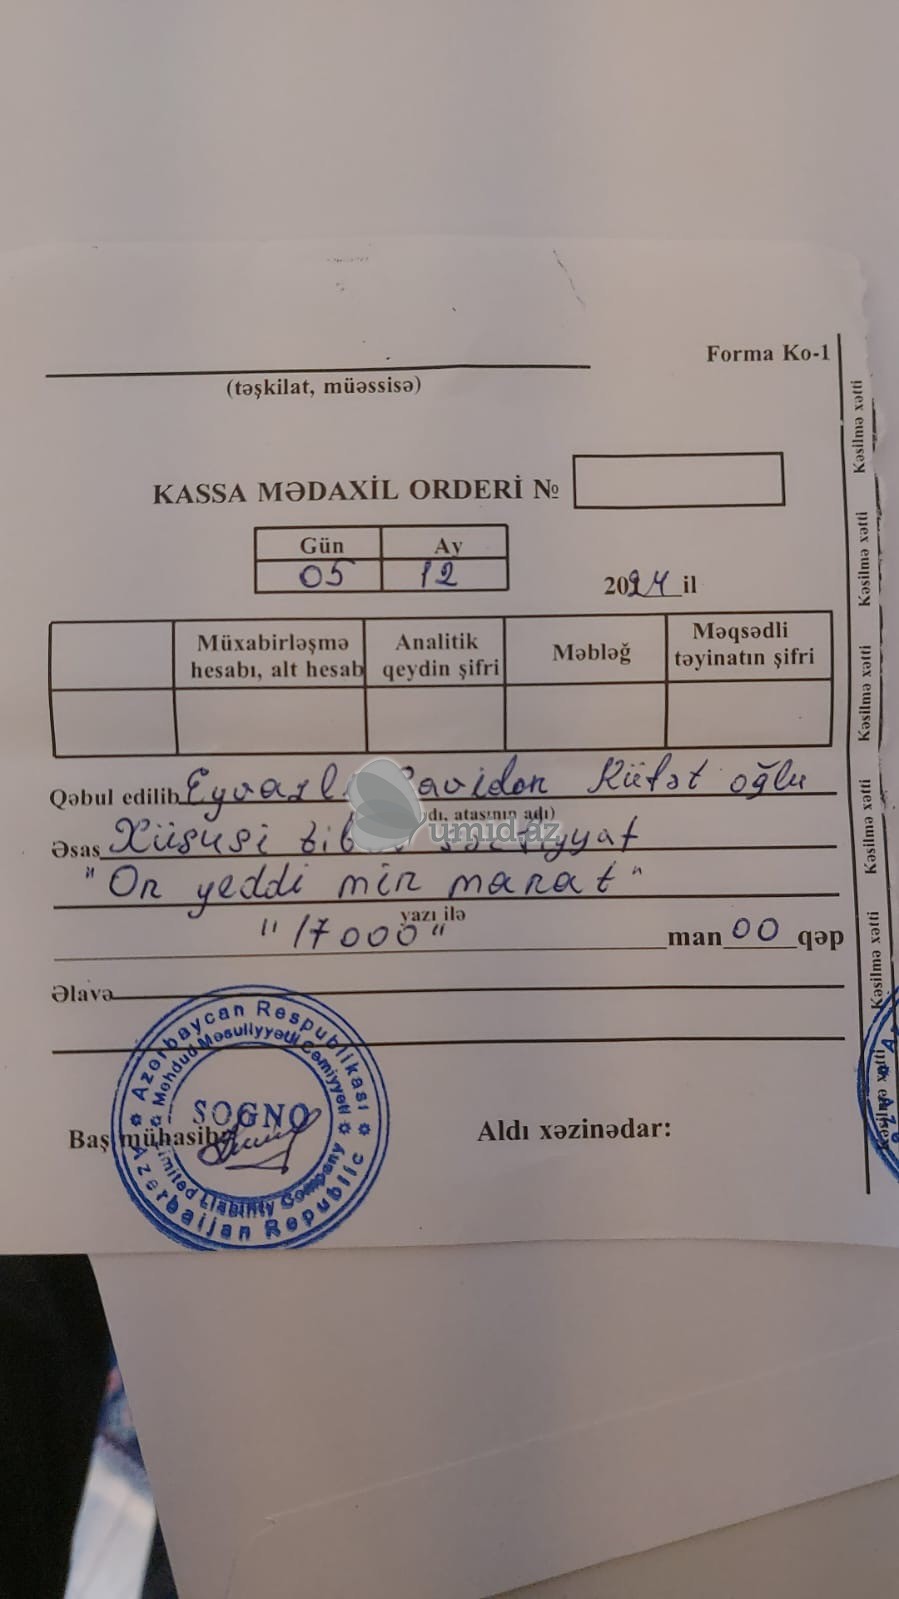 Forma Ko-1
(təşkilat, müəssisə)
KASSA MƏDAXİL ORDERİ №
Gün Ay
05 12
2024 il
Müxabirləşmə hesabı, alt hesab
Analitik qeydin şifri
Məbləğ
Məqsədli təyinatın şifri
Qəbul edilib Rüfət oğlu
atasının adı)
umid.az
Əsas Xüsusi
"On yeddi min manat"
yazı ilə
"17000" man 00 qəp
Əlavə
Baş mühasib
Aldı xəzinədar:
Azərbaycan Respublikası
Məhdud Məsuliyyətli Cəmiyyəti
SOGNO
Limited Liability Company
Azerbaijan Republic
Kəsilmə xətti
Kəsilmə xətti
Kəsilmə xətti
Kəsilmə xətti
Kəsilmə xətti